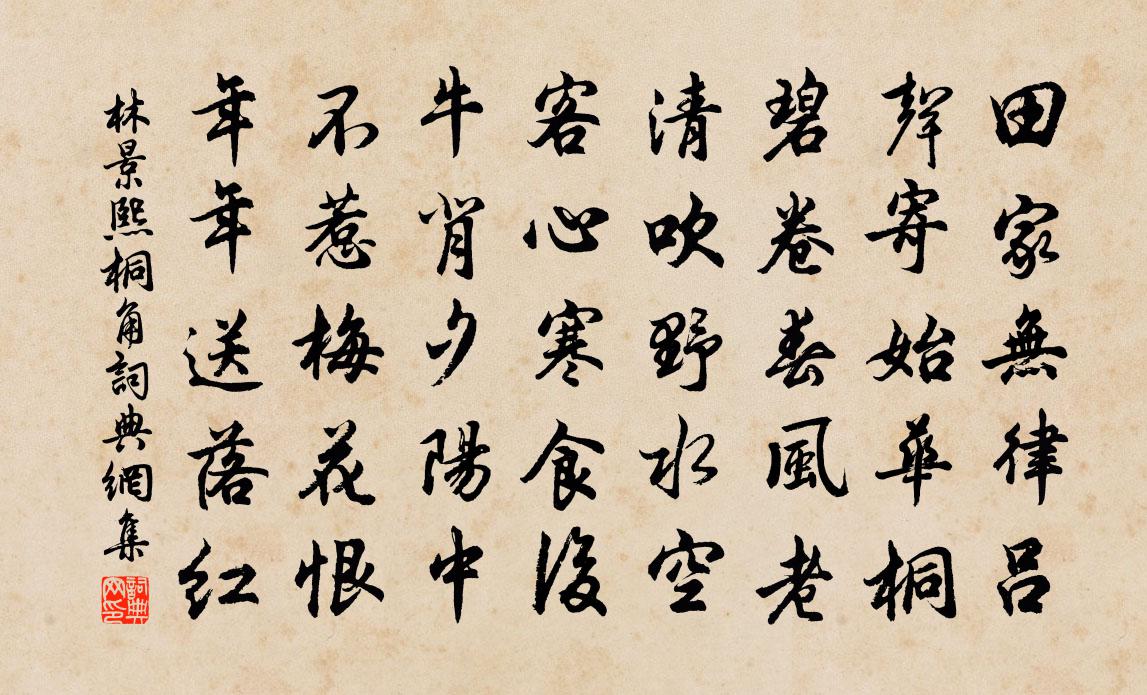 田家無律呂
聲寄始華桐
碧卷春風老
清吹野水空
客心寒食後
牛背夕陽中
不惹梅花恨
年年送落红
林景熙桐角詞典網集
詞典網印